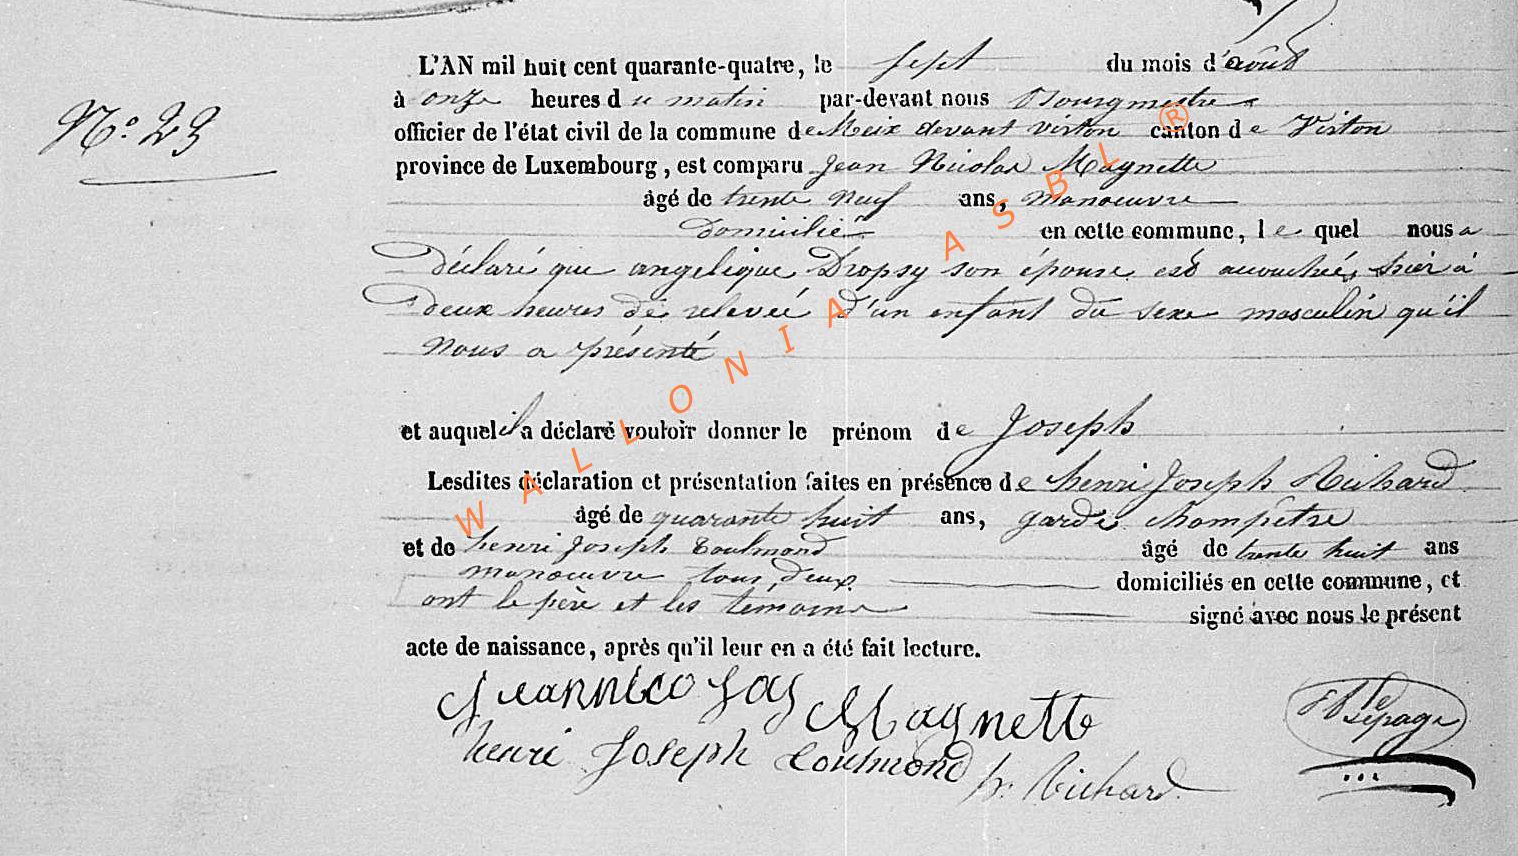 N.º 23
L'AN mil huit cent quarante-quatre, le sept du mois d'août
à onze heures du matin par-devant nous Bourgmestre
officier de l'état civil de la commune de Meix devant virton canton de Virton
province de Luxembourg, est comparu Jean Nicolas Magnette
âgé de trente neuf ans, manoeuvre
domicilié en cette commune, lequel nous a
Déclaré que angelique Dropsy son épouse est accouchée, hier à
Deux heures de relevée d'un enfant du sexe masculin qu'il
nous a présenté
et auquel il a déclaré vouloir donner le prénom de Joseph
Lesdites déclaration et présentation faites en présence de henri Joseph Richard
âgé de quarante huit ans, garde champêtre
et de henri joseph Coulmond âgé de trente huit ans
manoeuvre tous deux domiciliés en cette commune, et
ont le père et les témoins signé avec nous le présent
acte de naissance, après qu'il leur en a été fait lecture.
Jeannicolas Magnette
henri Joseph Coulmond
h. Richard
lepage
WALLONIA ASBL ®